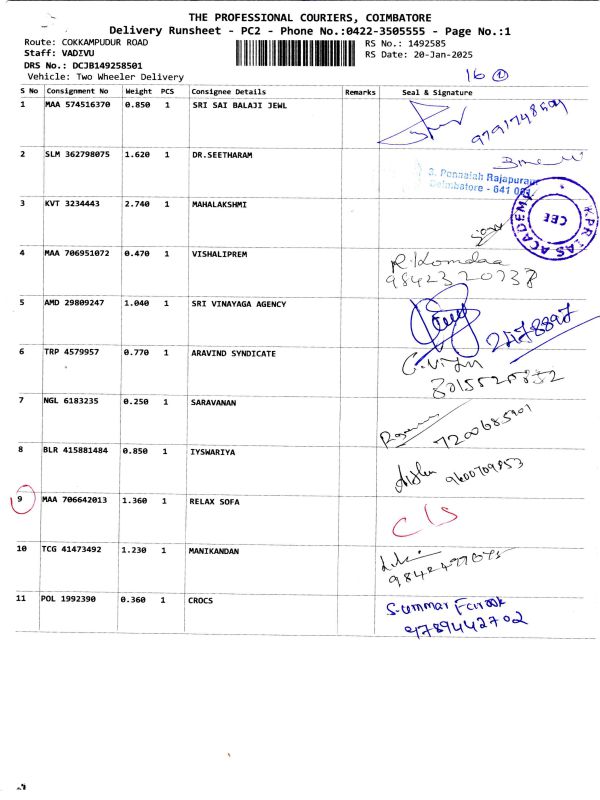 THE PROFESSIONAL COURIERS, COIMBATORE
Delivery Runsheet - PC2 - Phone No.:0422-3505555 - Page No.:1
Route: COKKAMPUDUR ROAD RS No.: 1492585
Staff: VADIVU RS Date: 20-Jan-2025
DRS No.: DCJB149258501
Vehicle: Two Wheeler Delivery 16 1
S No Consignment No Weight PCS Consignee Details Remarks Seal & Signature
1 MAA 574516370 0.850 1 SRI SAI BALAJI JEWL
9791748504
2 SLM 362798075 1.620 1 DR.SEETHARAM
3, Ponnaiah Rajapuram
Coimbatore - 641 001
3 KVT 3234443 2.740 1 MAHALAKSHMI
KPR IAS ACADEMY
CBE
4 MAA 706951072 0.470 1 VISHALIPREM
9842320737
5 AMD 29809247 1.040 1 SRI VINAYAGA AGENCY
6 TRP 4579957 0.770 1 ARAVIND SYNDICATE
7 NGL 6183235 0.250 1 SARAVANAN
7200685901
8 BLR 415881484 0.850 1 IYSWARIYA
9600709853
9 MAA 706642013 1.360 1 RELAX SOFA C/S
10 TCG 41473492 1.230 1 MANIKANDAN
11 POL 1992390 0.360 1 CROCS S.Ummar Farook
9789442702